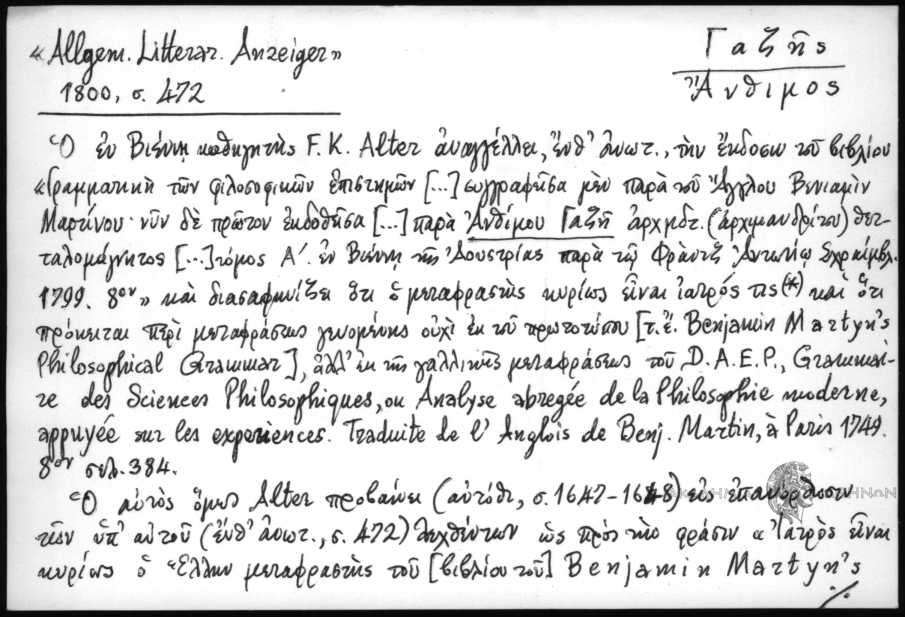 «Allgem. Litterar. Anzeiger»
1800, σ. 472
Γαζῆς
Ἄνθιμος
Ὁ ἐν Βιέννῃ καθηγητὴς F. K. Alter ἀναγγέλλει, ἔνθ' ἀνωτ., τὴν ἔκδοσιν τοῦ βιβλίου
«Γραμματικὴ τῶν φιλοσοφικῶν ἐπιστημῶν [...] συγγραφεῖσα μὲν παρὰ τοῦ Ἄγγλου Βενιαμὶν
Μαρτίνου· νῦν δὲ πρῶτον ἐκδοθεῖσα [...] παρὰ Ἀνθίμου Γαζῆ ἀρχμδτ. (ἀρχιμανδρίτου) θετ-
ταλομάγνητος [...] τόμος Α΄. ἐν Βιέννῃ τῆς Ἀουστρίας παρὰ τῷ Φρὰντζ Ἀντωνίῳ Σχραίμβλ.
1799. 8ον» καὶ διασαφηνίζει ὅτι ὁ μεταφραστὴς κυρίως εἶναι ἰατρός τις (*) καὶ ὅτι
πρόκειται περὶ μεταφράσεως γενομένης οὐχὶ ἐκ τοῦ πρωτοτύπου [τ. ἔ. Benjamin Martyn's
Philosophical Grammar], ἀλλ' ἐκ τῆς γαλλικῆς μεταφράσεως τοῦ D. A. E. P., Grammai-
re des Sciences Philosophiques, ou Analyse abregée de la Philosophie moderne,
appuyée sur les experiences. Traduite de l' Anglois de Benj. Martin, à Paris 1749.
8ον σελ. 384.
Ὁ αὐτὸς ὅμως Alter προβαίνει (αὐτόθι, σ. 1647-1648) εἰς ἐπανόρθωσιν
τῶν ὑπ' αὐτοῦ (ἔνθ' ἀνωτ., σ. 472) λεχθέντων ὡς πρὸς τὴν φράσιν «Ἰατρὸς εἶναι
κυρίως ὁ Ἕλλην μεταφραστὴς τοῦ [βιβλίου τοῦ] Benjamin Martyn's
·/·